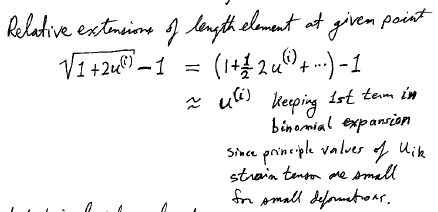 Relative extensions of length element at given point
√1+2u⁽ⁱ⁾ - 1 = (1+½ 2u⁽ⁱ⁾+⋯)-1
≈ u⁽ⁱ⁾ keeping 1st term in
binomial expansion
since principle values of Uik
strain tensor are small
for small deformations.